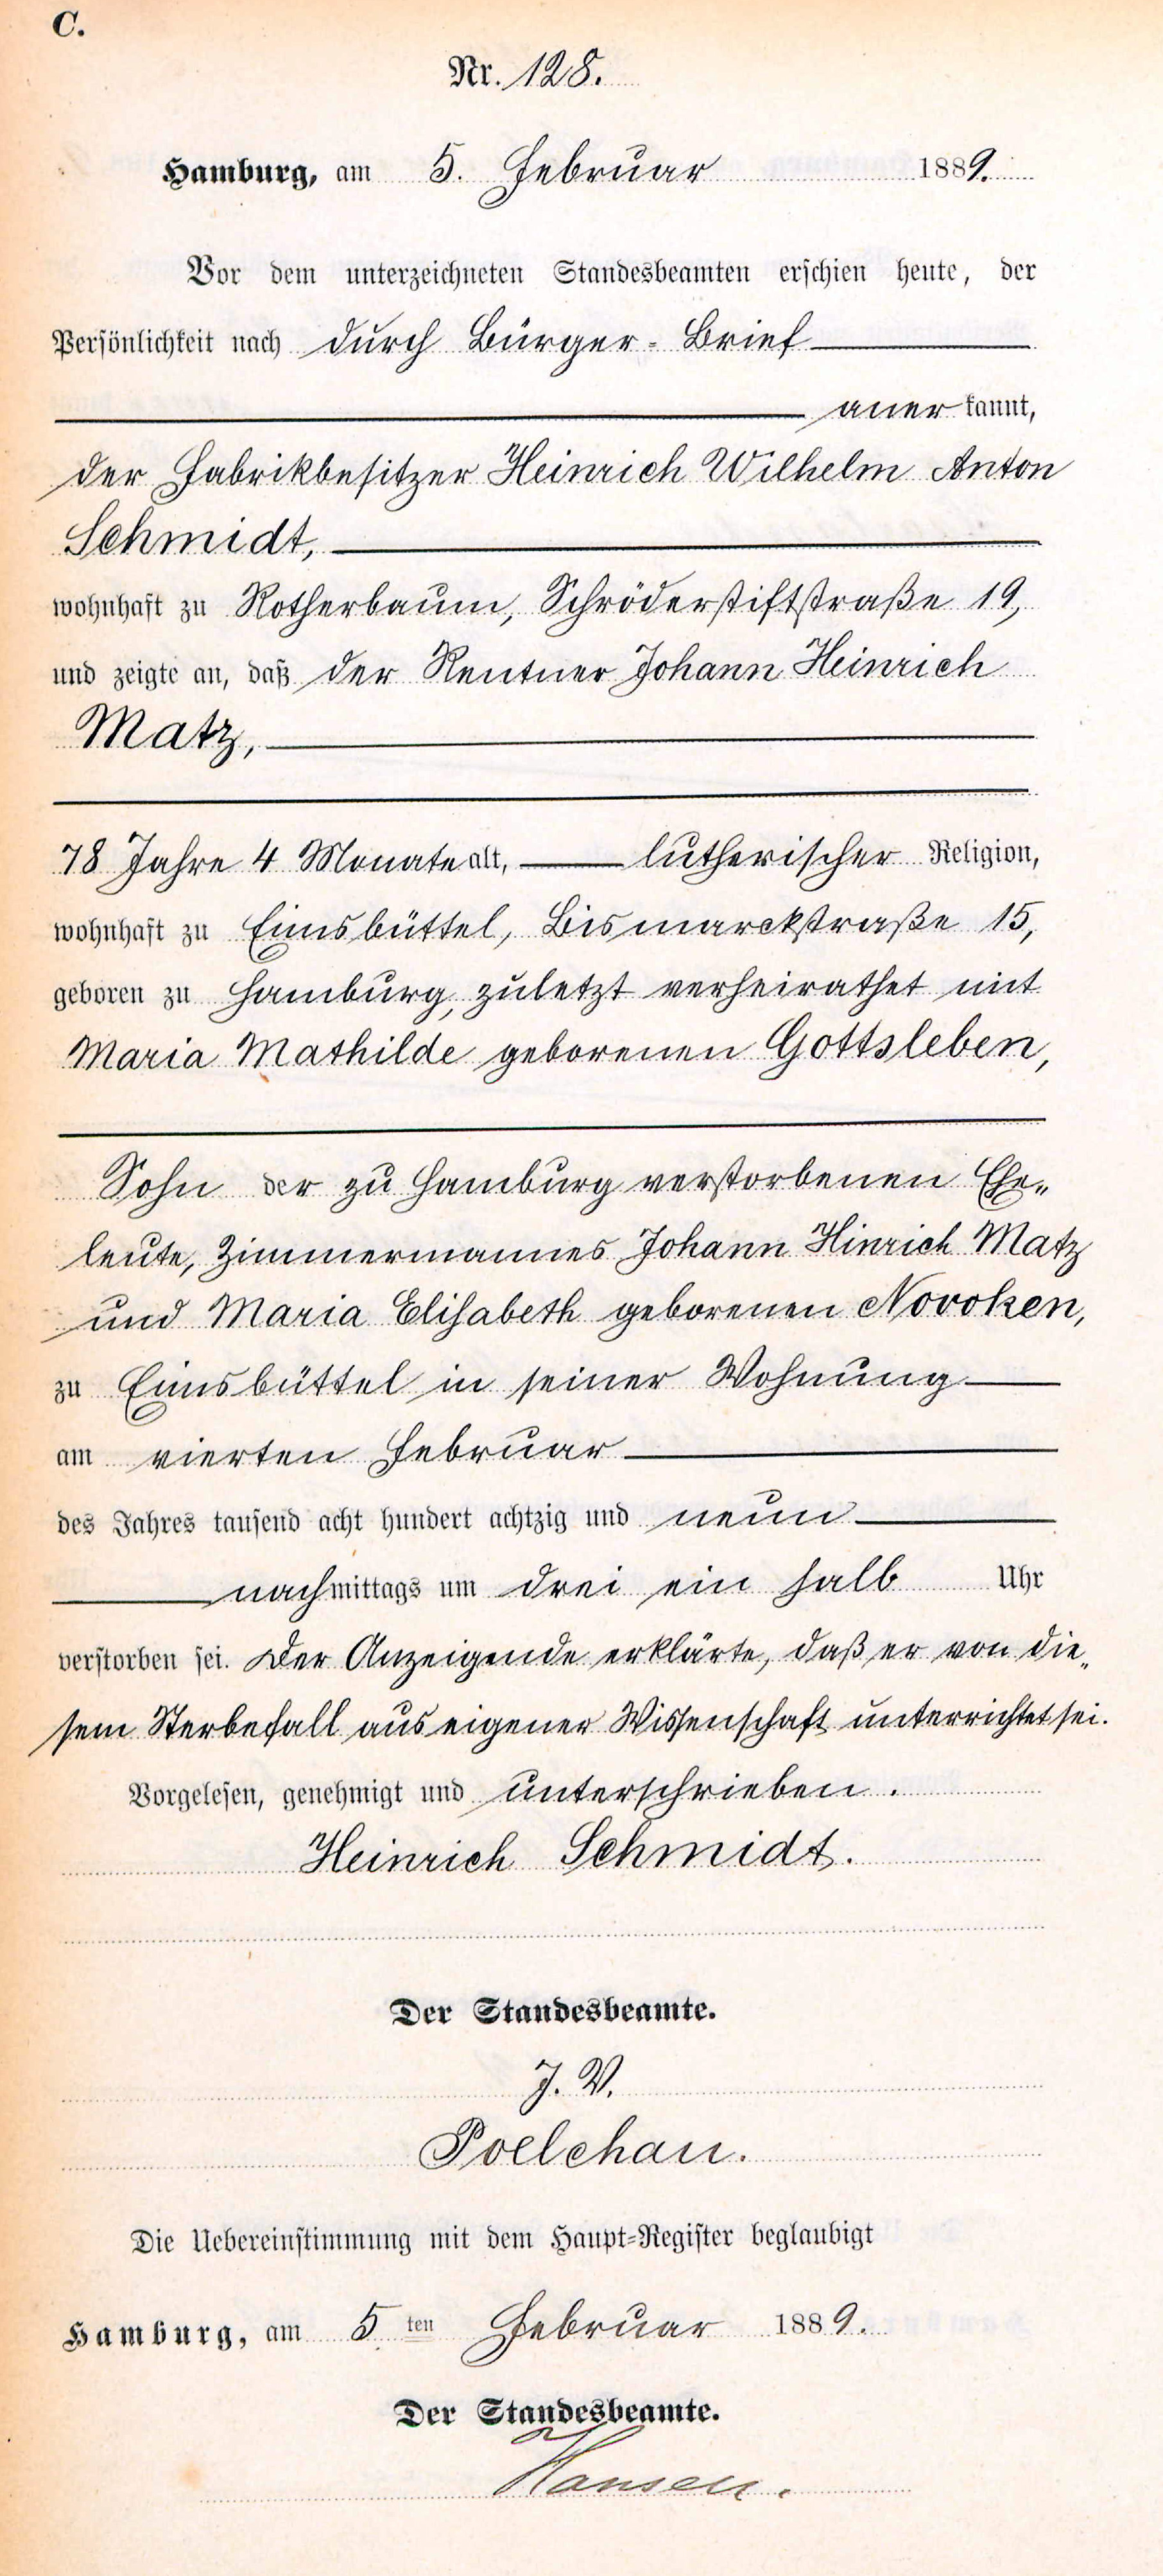 C.
Nr. 128.
Hamburg, am 5. Februar 1889.
Vor dem unterzeichneten Standesbeamten erschien heute, der
Persönlichkeit nach durch Bürger-Brief
aner kannt,
der Fabrikbesitzer Heinrich Wilhelm Anton
Schmidt,
wohnhaft zu Rotherbaum, Schröderstiftstraße 19,
und zeigte an, daß der Rentner Johann Heinrich
Matz,
78 Jahre 4 Monate alt, lutherischer Religion,
wohnhaft zu Eimsbüttel, Bismarckstraße 15,
geboren zu Hamburg, zuletzt verheirathet mit
Maria Mathilde geborenen Gottsleben,
Sohn der zu Hamburg verstorbenen Ehe-
leute, Zimmermannes Johann Hinrich Matz
und Maria Elisabeth geborenen Novoken,
zu Eimsbüttel in seiner Wohnung
am vierten Februar
des Jahres tausend acht hundert achtzig und neun
nachmittags um drei ein halb Uhr
verstorben sei. Der Anzeigende erklärte, daß er von die-
sem Sterbefall aus eigener Wissenschaft unterrichtet sei.
Vorgelesen, genehmigt und unterschrieben.
Heinrich Schmidt.
Der Standesbeamte.
J. V.
Poelchau.
Die Uebereinstimmung mit dem Haupt-Register beglaubigt
Hamburg, am 5 ten Februar 1889.
Der Standesbeamte.
Hansen.